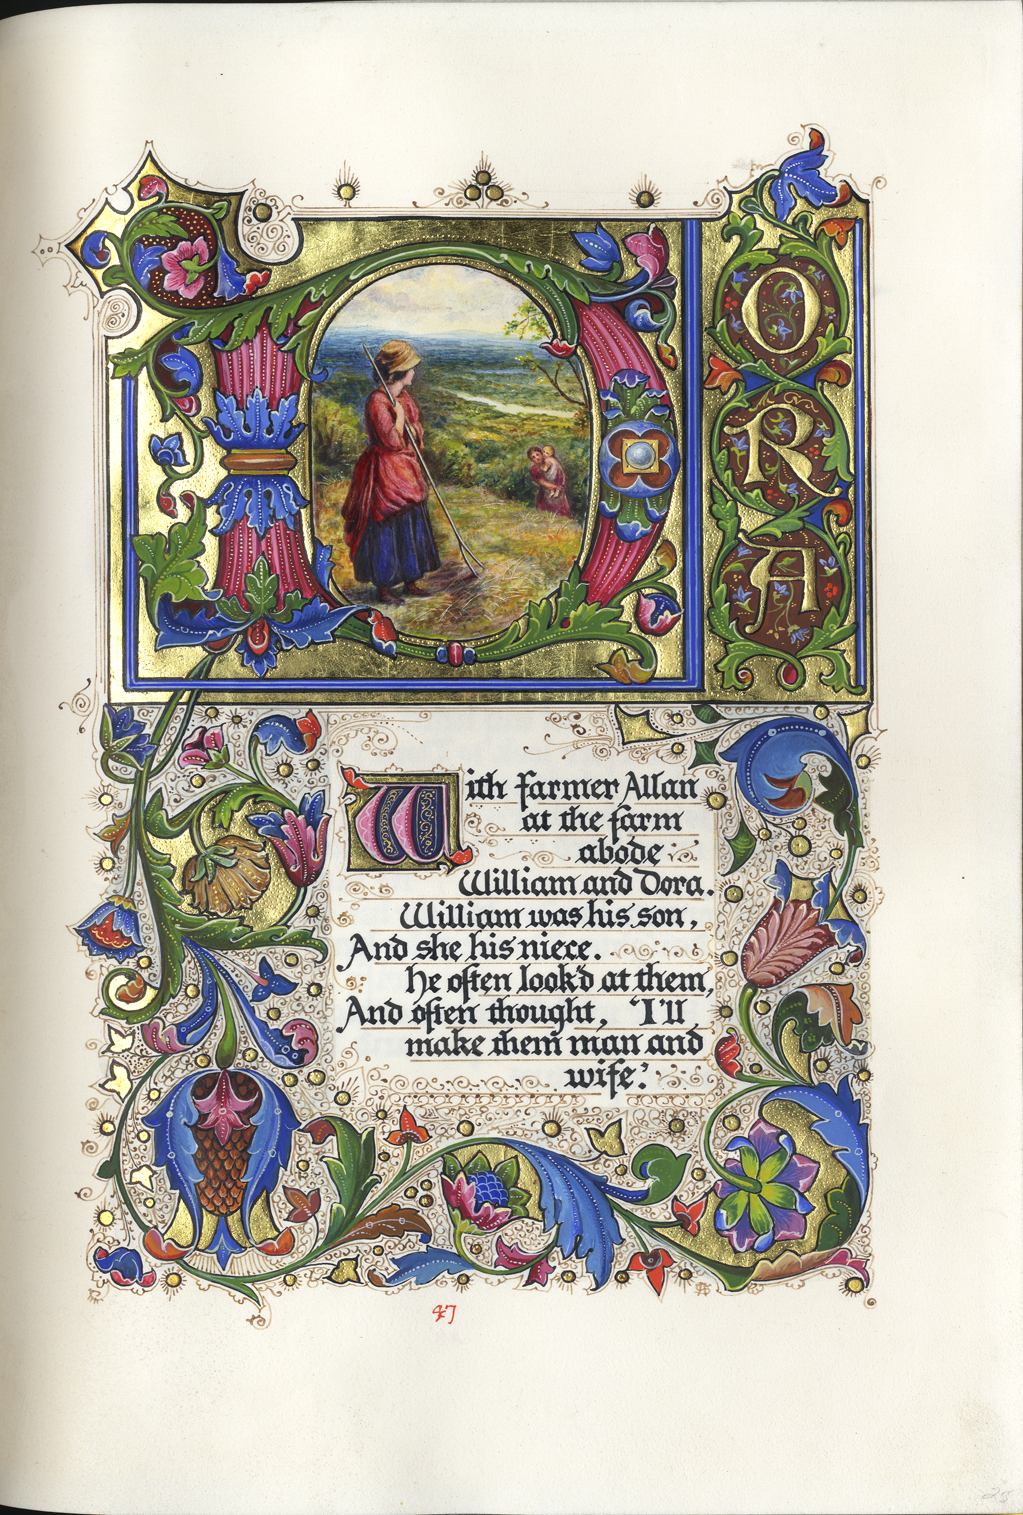 DORA
With farmer Allan
at the farm
abode
William and Dora.
William was his son,
And she his niece.
He often look'd at them,
And often thought, 'I'll
make them man and
wife.'
47
25